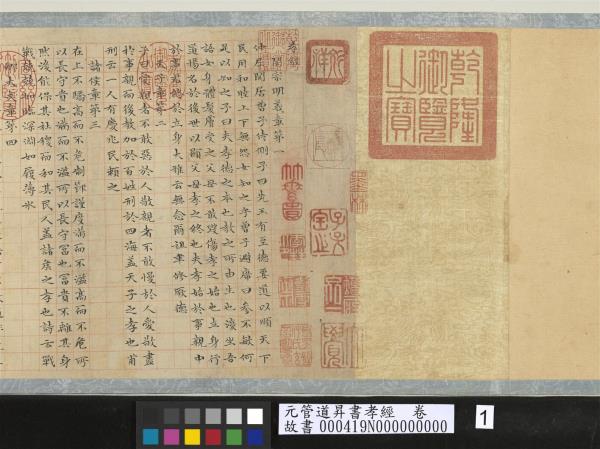 乾隆御覽之寶
孝經
開宗明義章第一
仲尼閒居曾子侍側子曰先王有至德要道以順天下
民用和睦上下無怨女知之乎曾子避席曰參不敏何
足以知之子曰夫孝德之本也教之所由生也復坐吾
語女身體髮膚受之父母不敢毀傷孝之始也立身行
道揚名於後世以顯父母孝之終也夫孝始於事親中
於事君終於立身大雅云無念爾祖聿脩厥德
天子章第二
子曰愛親者不敢惡於人敬親者不敢慢於人愛敬盡
於事親而後教加於百姓刑於四海蓋天子之孝也甫
刑云一人有慶兆民賴之
諸侯章第三
在上不驕高而不危制節謹度滿而不溢高而不危所
以長守貴也滿而不溢所以長守富也富貴不離其身
然後能保其社稷而和其民人蓋諸侯之孝也詩云戰
戰兢兢如臨深淵如履薄冰
卿大夫章第四
元管道昇書孝經 卷
故書 000419N000000000
1